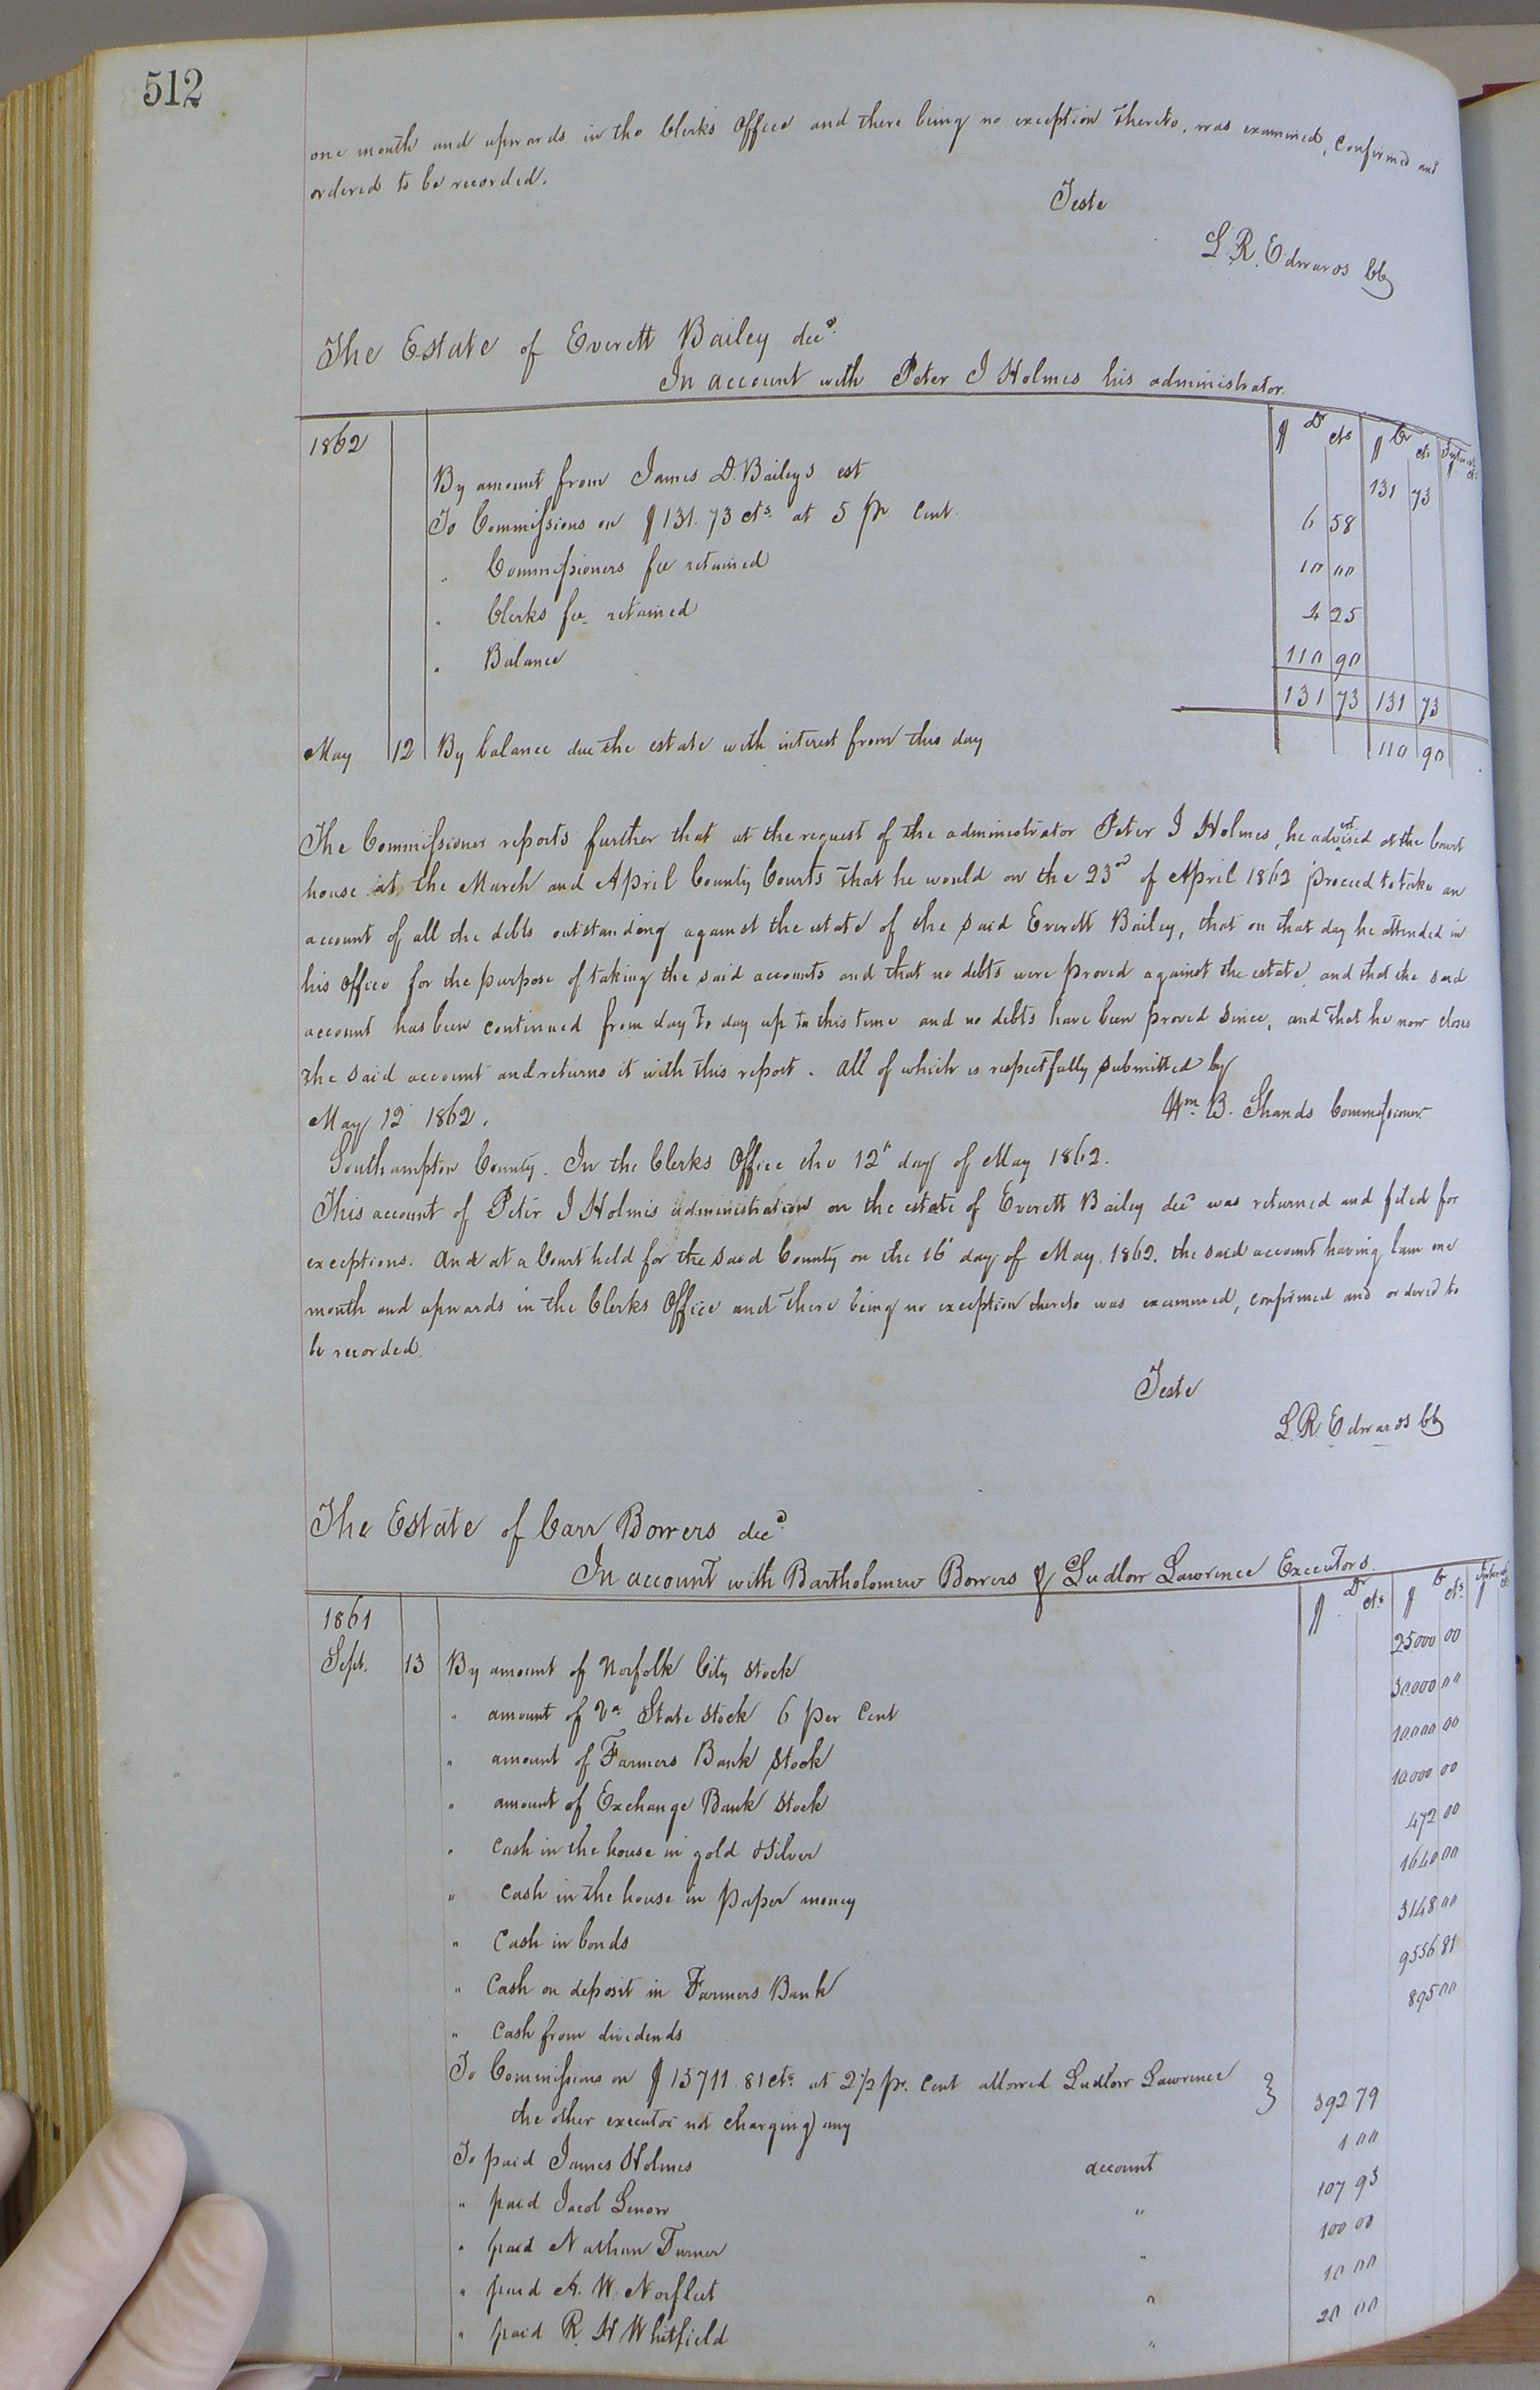 512
one month and upwards in the Clerks Office and there being no exception thereto, was examined, Confirmed and
ordered to be recorded.
Teste
L. R. Edwards CC
The Estate of Everett Bailey decd.
In account with Peter I Holmes his administrator.
1862 $ Dr cts $ Cr cts Interest
By amount from James D. Baileys est 131 73
To Commissions on $131.73 cts at 5 pr. Cent. 6 58
" Commissioners fee retained 10 00
" Clerks fee retained 4 25
" Balance 110 90
131 73 131 73
May 12 By balance due the estate with interest from this day 110 90
The Commissioner reports further that at the request of the administrator Peter I Holmes, he advertised at the Court
house at the March and April County Courts that he would on the 23rd of April 1862 proceed to take an
account of all the debts outstanding against the estate of the said Everett Bailey, that on that day he attended in
his Office for the purpose of taking the said accounts and that no debts were proved against the estate, and that the said
account has been continued from day to day up to this time and no debts have been proved since, and that he now closes
the said account and returns it with this report. All of which is respectfully submitted by
May 12 1862. Wm. B. Shands Commissioner
Southampton County. In the Clerks Office the 12th day of May 1862.
This account of Peter I Holmes administration on the estate of Everett Bailey decd was returned and filed for
exceptions. And at a Court held for the said County on the 16th day of May 1862. the said account having lain one
month and upwards in the Clerks Office and there being no exception thereto was examined, confirmed and ordered to
be recorded.
Teste
L. R. Edwards CC
The Estate of Carr Bowers decd.
In account with Bartholomew Bowers & Ludlow Lawrence Executors.
1861 $ Dr cts $ Cr cts Interest
Sept. 13 By amount of Norfolk City Stock 25000 00
" amount of Va. State Stock 6 per Cent 30000 00
" amount of Farmers Bank Stock 10000 00
" amount of Exchange Bank Stock 10000 00
" Cash in the house in gold & Silver 472 00
" Cash in the house in paper money 1640 00
" Cash in bonds 3148 00
" Cash on deposit in Farmers Bank 9556 81
" Cash from dividends 895 00
To Commissions on $15711.81 cts at 2 1/2 pr. Cent allowed Ludlow Lawrence }
the other executor not charging any 392 79
To paid James Holmes account 1 00
" paid Jacob Lenow " 107 93
" paid Nathan Turner " 100 00
" paid A. W. Norfleet " 10 00
" paid R. H Whitfield " 20 00